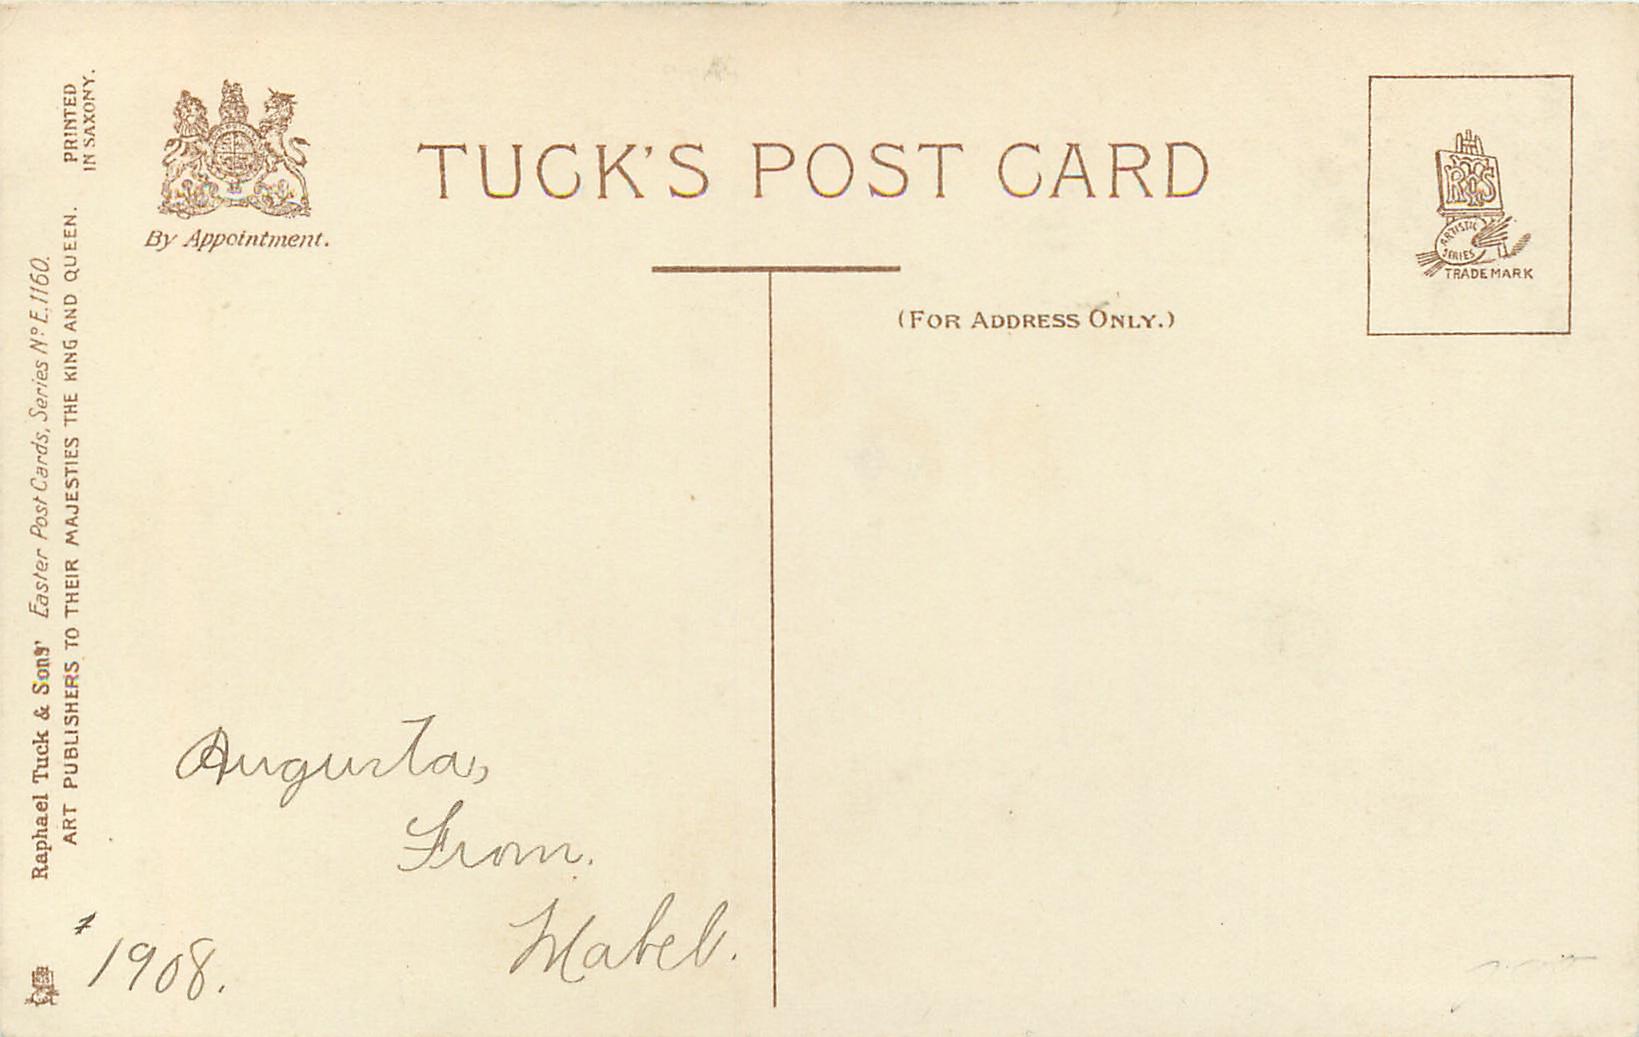 TUCK'S POST CARD
By Appointment.
(FOR ADDRESS ONLY.)
RTS
ARTISTIC
SERIES
TRADE MARK
Raphael Tuck & Sons' Easter Post Cards, Series No E. 1160.
ART PUBLISHERS TO THEIR MAJESTIES THE KING AND QUEEN.
PRINTED
IN SAXONY.
Augusta,
From.
Mabel.
1908.